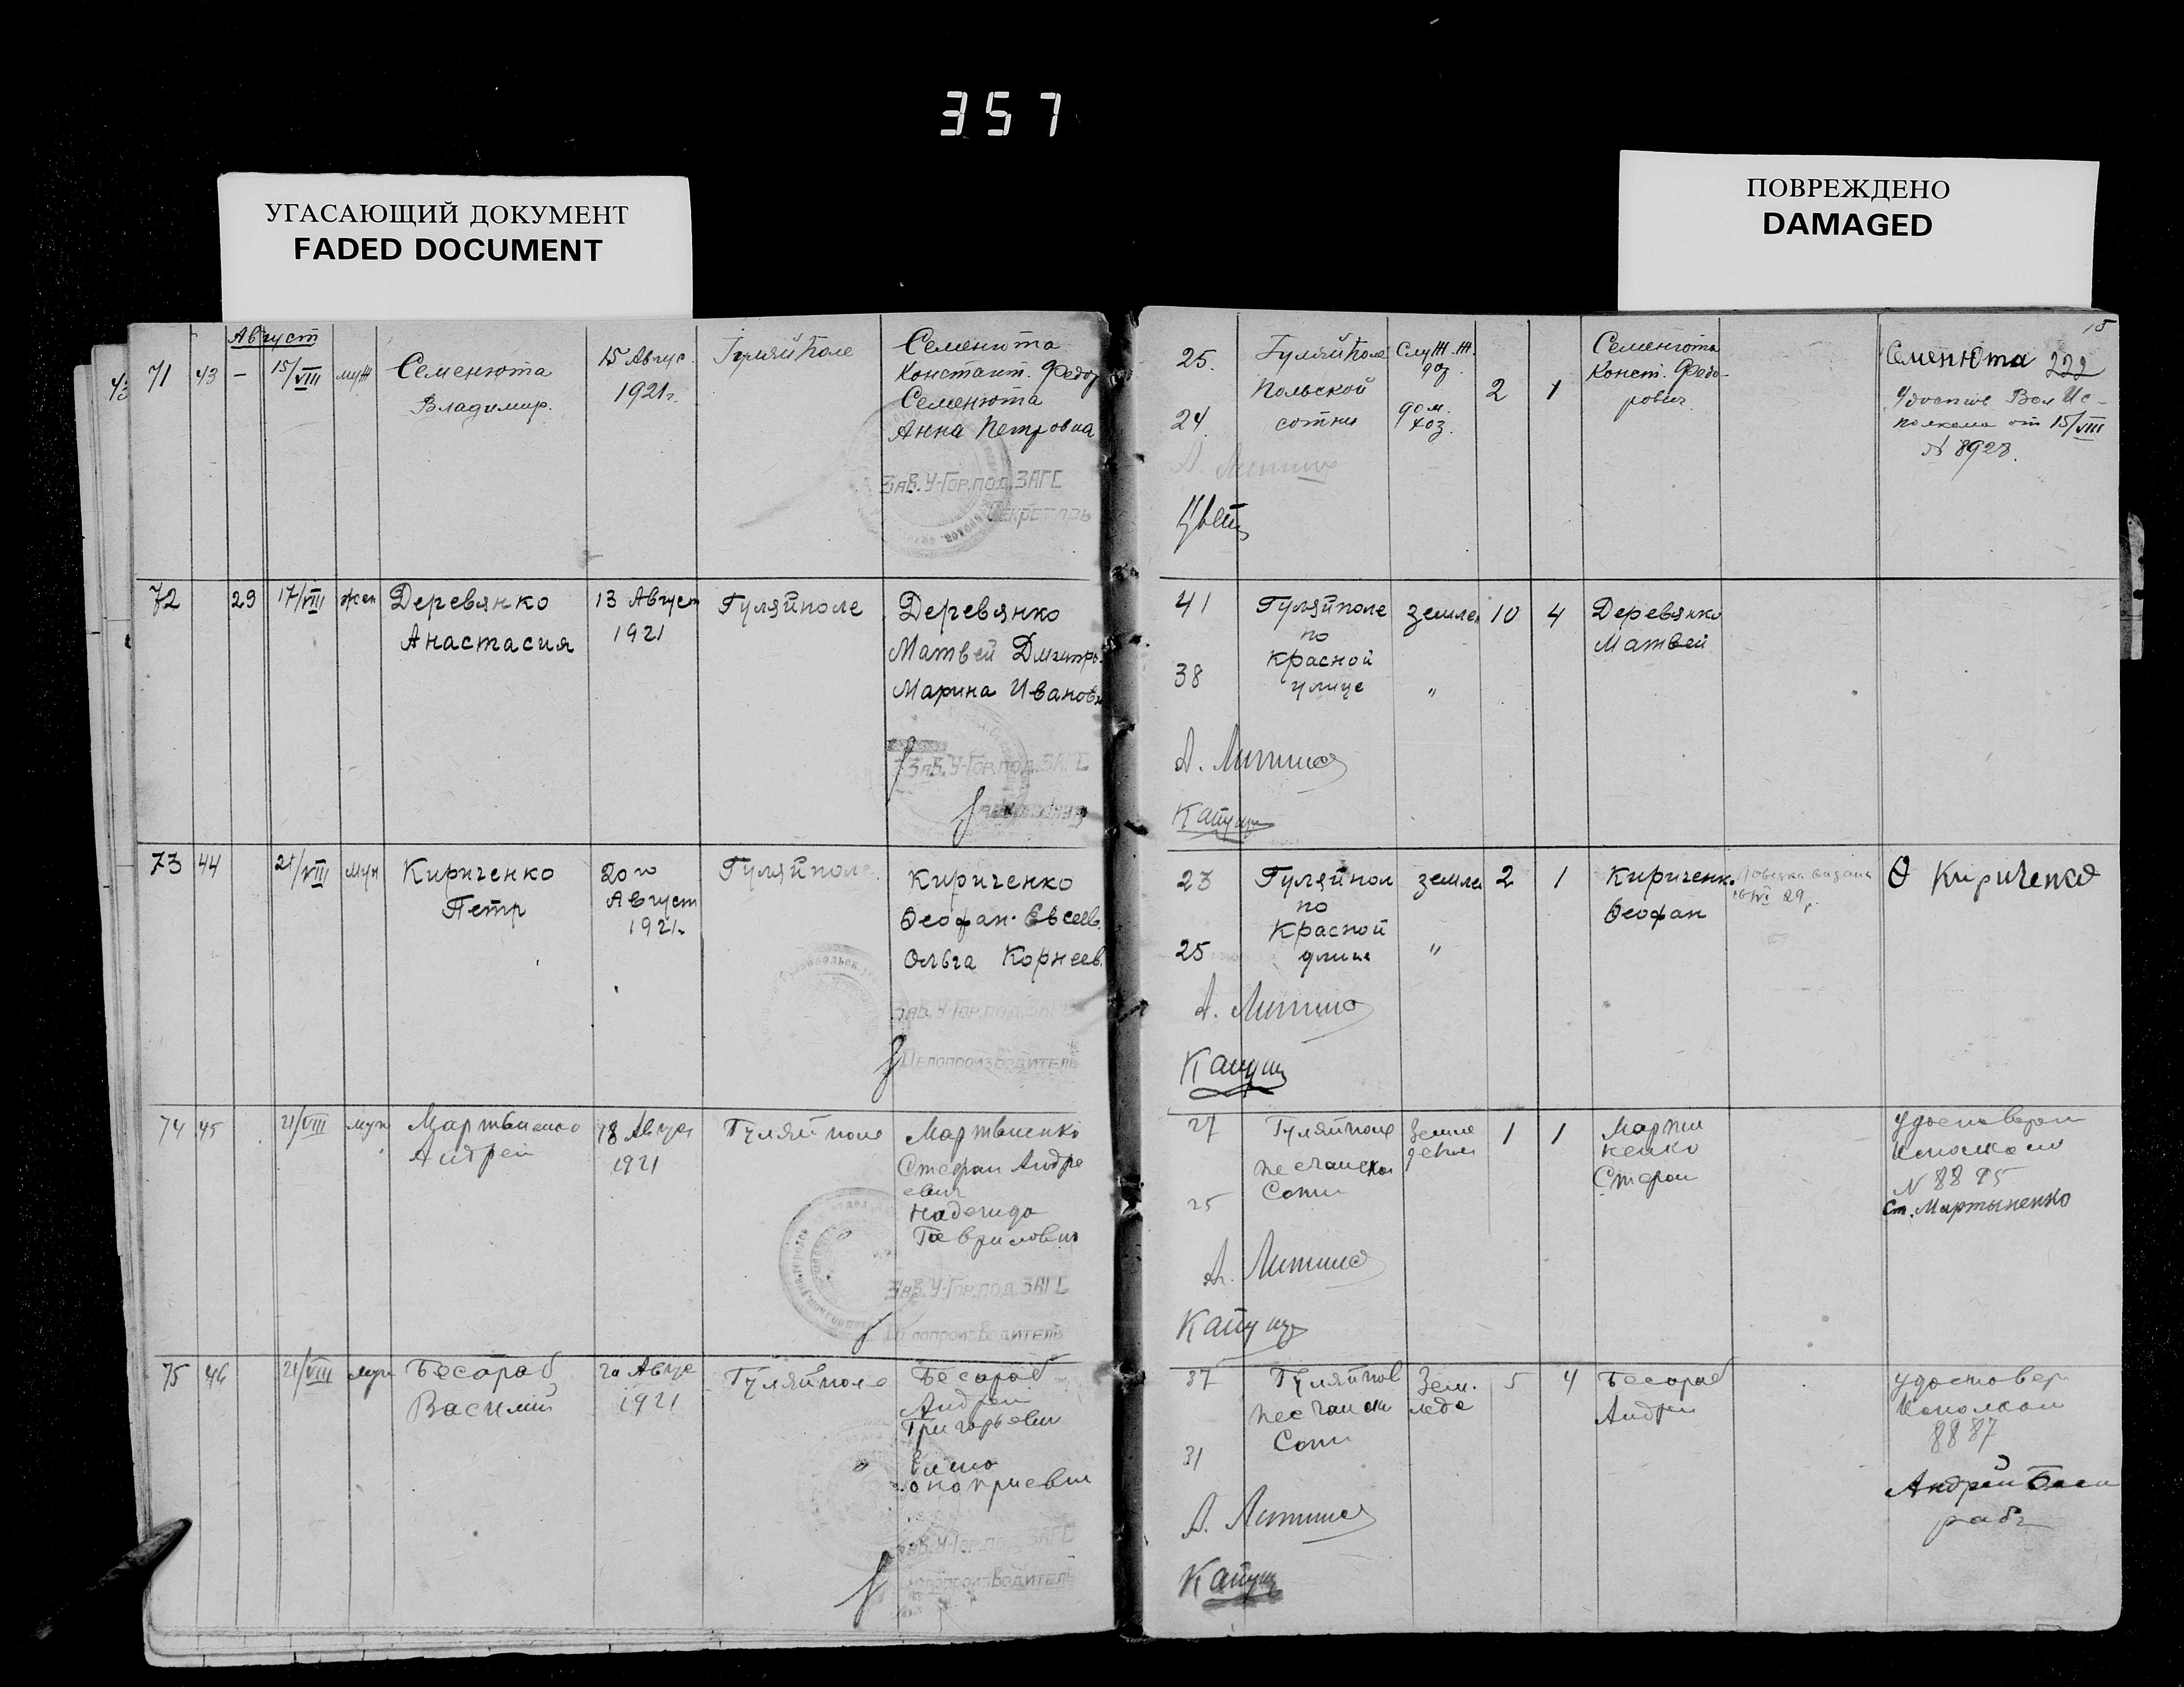 357
УГАСАЮЩИЙ ДОКУМЕНТ
FADED DOCUMENT
ПОВРЕЖДЕНО
DAMAGED
Август
71 43 — 15/VIII муж Семенюта Владимир. 15 Авгус. 1921г. Гуляй Поле
Семенюта
Констант. Федор
Семенюта
Анна Петровна
Зав. У-Гор.под. ЗАГС
Секретарь
72 29 17/VIII жен Деревянко Анастасия 13 Август 1921 Гуляйполе
Деревянко
Матвей Дмитри.
Марина Ивановн
Зав. У-Гор.под. ЗАГС
73 44 21/VIII муж Кириченко Петр 20го Август 1921г Гуляйполе
Кириченко
Феофан. Евсеев.
Ольга Корнеев.
Зав. У-Гор.под. ЗАГС
Делопроизводитель
74 45 21/VIII муж Мартыненко Андрей 18 Авгус 1921 Гуляй поле
Мартыненко
Стефан Андре
евич
Надежда
Гавриловна
Зав. У-Гор.под. ЗАГС
Делопроизводитель
75 46 21/VIII муж Бесараб Василий 20 Авгус 1921 Гуляйполе
Бесараб
Андрей
Григорьевич
Зав. У-Гор.под. ЗАГС
Делопроизводитель
15
25. Гуляй Поле Служ. Ж. 2 1 Семенюта Семенюта 222
Польской Конст. Федо-
24. сотни дом. хоз. рович.
Вол Ис-
полкома от 15/VIII
№ 8928.
41 Гуляйполе землед 10 4 Деревянко
по Матвей
38 Красной
улице "
23 Гуляйпол землед 2 1 Кириченк. Ѳ Кириченко
по Феофан
Красной
25 улице "
27 Гуляйполе Земле 1 1 Марти удостоверен
делец ненко Исполкома
песчанской Стефан № 8895
25 Сотни Ст. Мартыненко
37 Гуляйпол Зем. 5 4 Бесараб удостовер
песчанск леде Андрей Исполком
Сотн 8887
31 Андрей Беса
рабъ